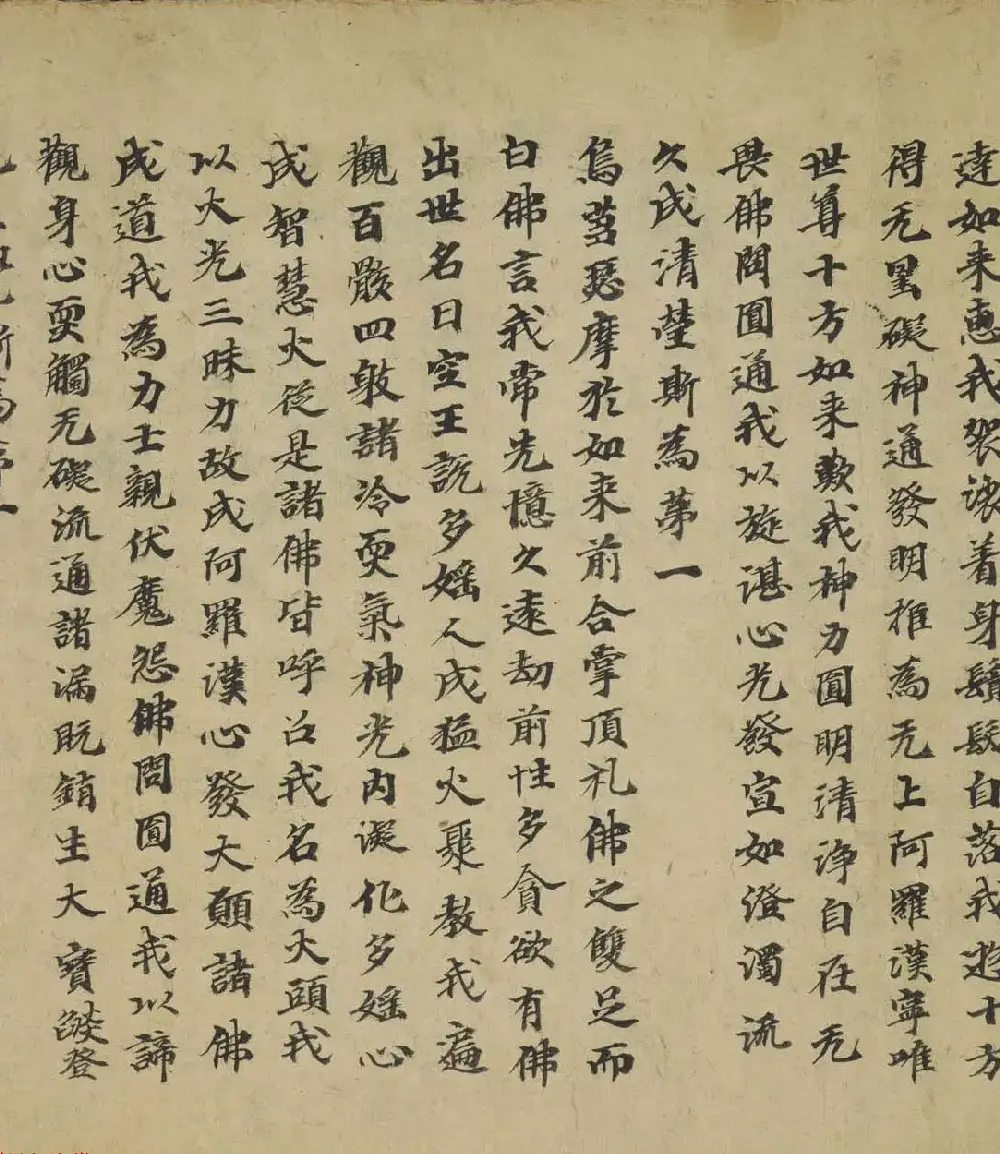 達如来惠我袈裟着身鬚髮自落我遊十方
得无罣礙神通發明推為无上阿羅漢寧唯
世尊十方如来歎我神力圓明清淨自在无
畏佛問圓通我以旋湛心光發宣如澄濁流
久成清瑩斯為苐一
烏芻瑟摩於如来前合掌頂礼佛之雙足而
白佛言我常先憶久遠劫前性多貪欲有佛
出世名曰空王説多婬人成猛火聚教我遍
觀百骸四敊諸冷耎氣神光内凝化多婬心
成智慧火從是諸佛皆呼召我名為火頭我
以火光三昧力故成阿羅漢心發大願諸佛
成道我為力士親伏魔怨佛問圓通我以諦
觀身心耎觸无礙流通諸漏既銷生大寶燄登
斯為苐一